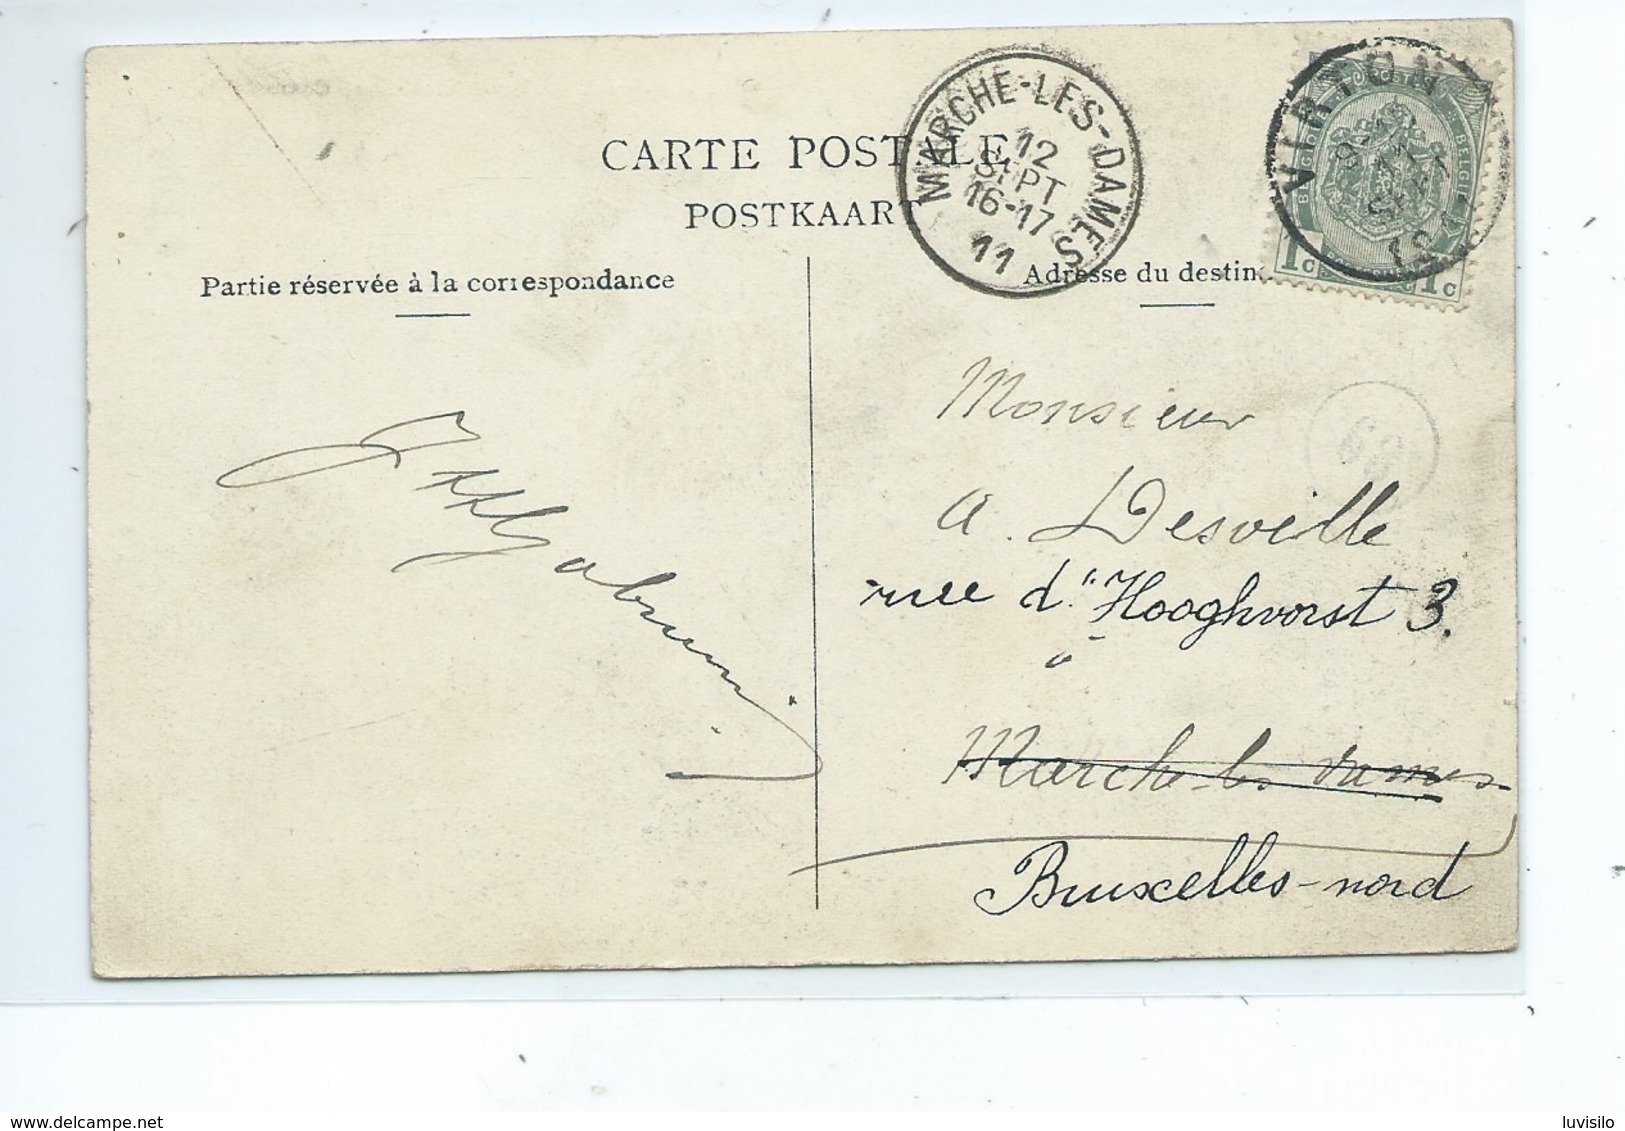 CARTE POSTALE
POSTKAART
Partie réservée à la correspondance
Adresse du destin
MARCHE-LES-DAMES
12
SEPT
16-17
11
VIRTON
SEPT
1c 1c
Monsieur
A. Desville
rue d'"Hooghvorst 3.
Marche-les-Dames
Bruxelles-nord
delcampe.net
luvisilo